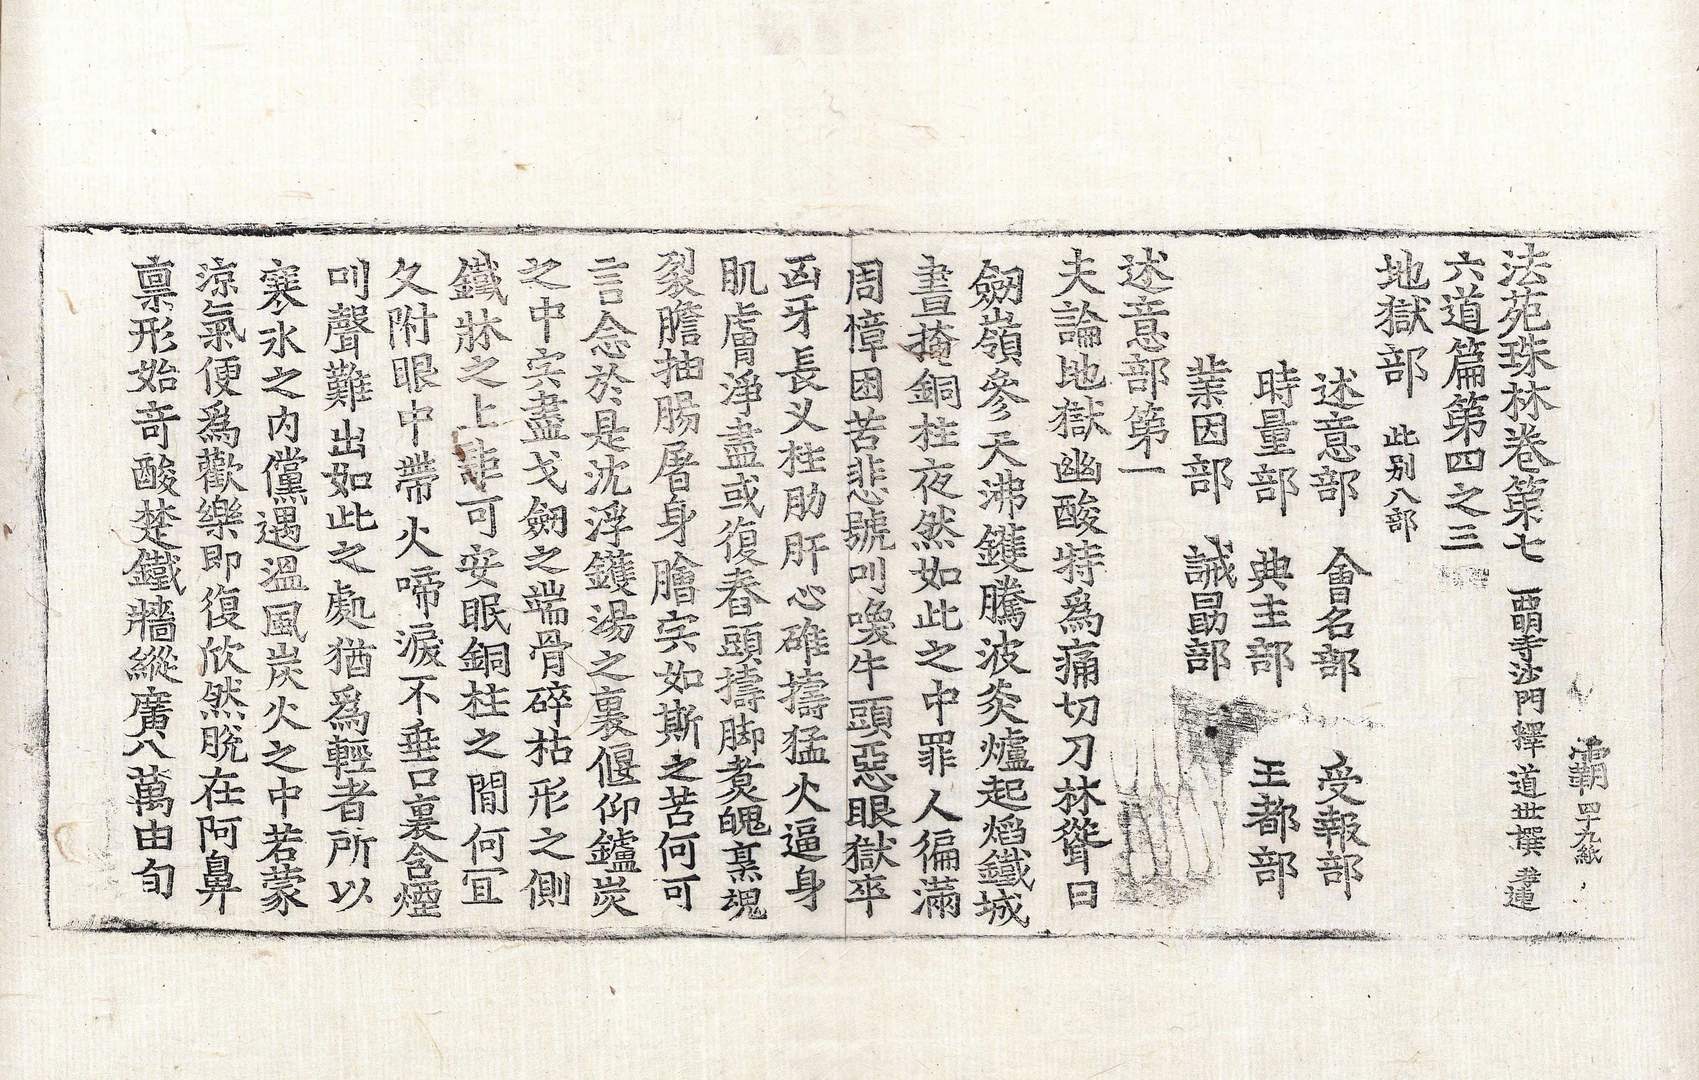 霸 四十九紙
法苑珠林卷第七 西明寺沙門釋 道世撰
六道篇第四之三
地獄部 此别八部
述意部 會名部 受報部
時量部 典主部 王都部
業因部 誡勗部
述意部第一
夫論地獄幽酸特爲痛切刀林聳日
劒嶺參天沸鑊騰波炎爐起熖鐵城
晝掩銅柱夜然如此之中罪人徧滿
周慞困苦悲號叫喚牛頭惡眼獄卒
凶牙長义柱肋肝心碓擣猛火逼身
肌膚淨盡或復舂頭擣脚煑魄烹魂
裂膽抽腸屠身膾宍如斯之苦何可
言念於是沈浮鑊湯之裏偃仰鑪炭
之中宍盡戈劒之端骨碎枯形之側
鐵牀之上詎可安眠銅柱之間何冝
久附眼中帶火啼淚不垂口裏含煙
叫聲難出如此之處猶爲輕者所以
寒氷之内儻遇溫風炭火之中若蒙
涼氣便爲歡樂即復欣然脫在阿鼻
禀形始奇酸楚鐵牆縱廣八萬由旬